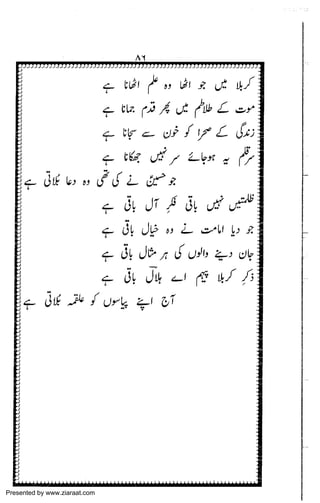 ۸۶
کربلا میں جو اٹھا وہ علم اٹھانا ہے
موت کے طلاطم میں پھر قدم جمانا ہے
زندگی کے صحرا کو خون سے سجانا ہے
سر قلم یہ ہوجائے سر نہیں جھکانا ہے
جو حسینؑ نے کی تھی وہ دعا بُلاتی ہے
ظلمتیں نہیں باقی فکرِ آل باقی ہے
جو دیا امامت نے وہ خیال باقی ہے
جان دینے والوں کی ہر مثال باقی ہے
ذکرِ کربلا پیہم اے ہلالؔ باقی ہے
آج اپنے پیاسوں کو علقمہ بُلاتی ہے
Presented by www.ziaraat.com